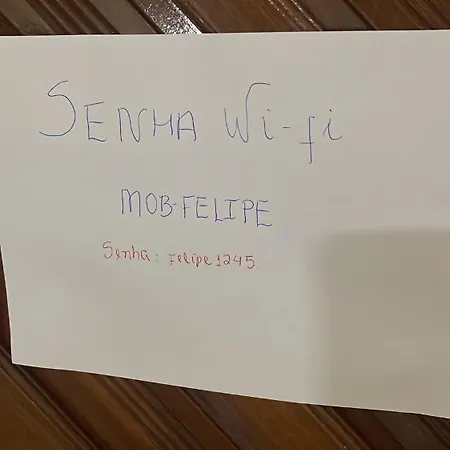 SENHA Wi-fi
MOB-FELIPE
Senha: Felipe1245